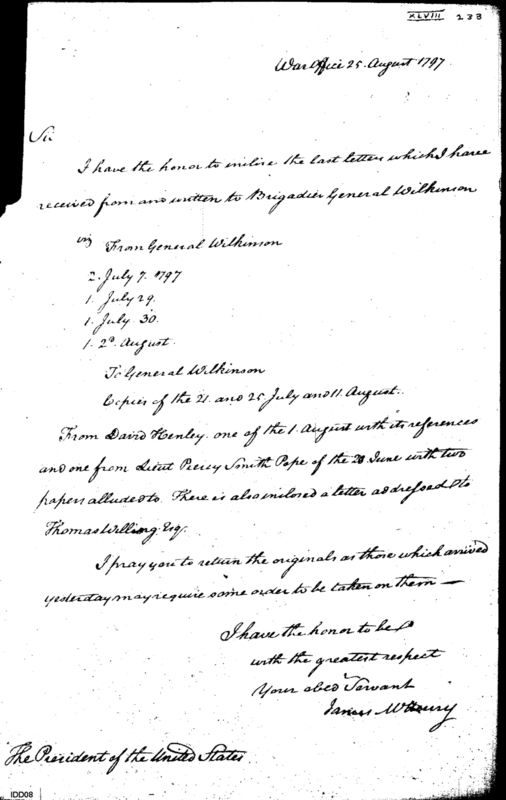 XLVIII 233
War Office 25. August 1797
Sir
I have the honor to inclose the last letters which I have
received from and written to Brigadier General Wilkinson
viz
From General Wilkinson
2. July 7. 1797
1. July 29.
1. July. 30.
1. 2d. August.
To General Wilkinson
Copies of the 21. and 25 July and 11. August.
From David Henley. one of the 1. August with its references
and one from Lieut Piercy Smith Pope of the June with two
papers alluded to. There is also inclosed a letter addressed to
Thomas Willing Esq.
I pray you to return the originals as those which arrived
yesterday may require some order to be taken on them —
I have the honor to be
with the greatest respect
Your obed Servant
James McHenry
The President of the United States
IDD08